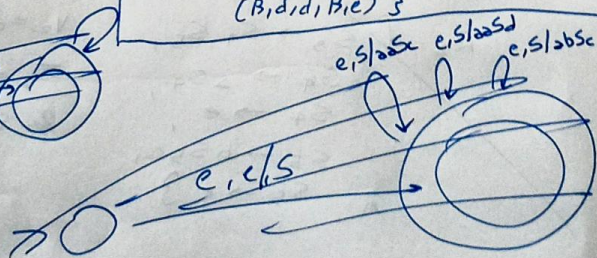 (B,d,d,B,e) s
e,S/aaSc e,S/aaSd e,S/abSc
e, e/S